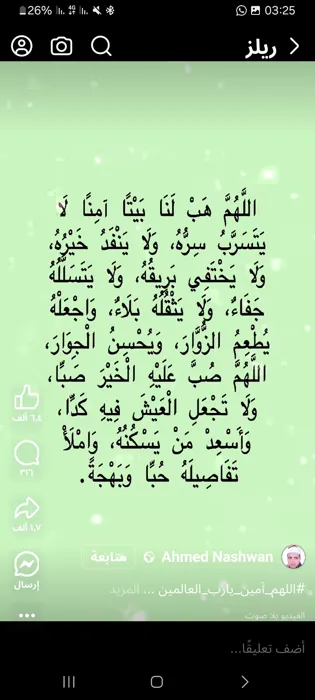 26% 03:25
ريلز
اللَّهُمَّ هَبْ لَنَا بَيْتًا آمِنًا لَا
يَتَسَرَّبُ سِرُّهُ، وَلَا يَنْفَدُ خَيْرُهُ،
وَلَا يَخْتَفِي بَرِيقُهُ، وَلَا يَتَسَلَّلُهُ
جَفَاءٌ، وَلَا يَثْقُلُهُ بَلَاءٌ، وَاجْعَلْهُ
يُطْعِمُ الزُّوَّارَ، وَيُحْسِنُ الْجِوَارَ،
اللَّهُمَّ صُبَّ عَلَيْهِ الْخَيْرَ صَبًّا،
وَلَا تَجْعَلِ الْعَيْشَ فِيهِ كَدًّا،
وَأَسْعِدْ مَنْ يَسْكُنُهُ، وَامْلَأْ
تَفَاصِيلَهُ حُبًّا وَبَهْجَةً.
٦٨ ألف
٣٢٦
١,٧ ألف
إرسال
Ahmed Nashwan
متابعة
#اللهم_آمين_يارب_العالمين ... المزيد
الفيديو بلا صوت.
أضف تعليقًا...